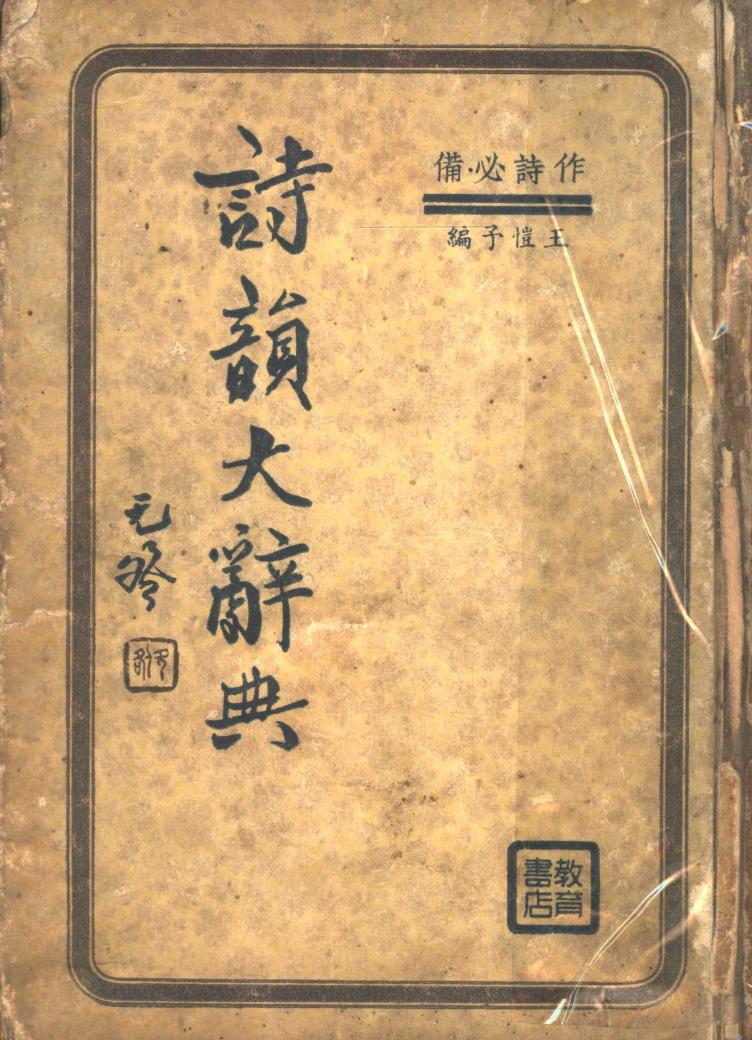 作詩必·備
王愷予編
詩韻大辭典
教育
書店